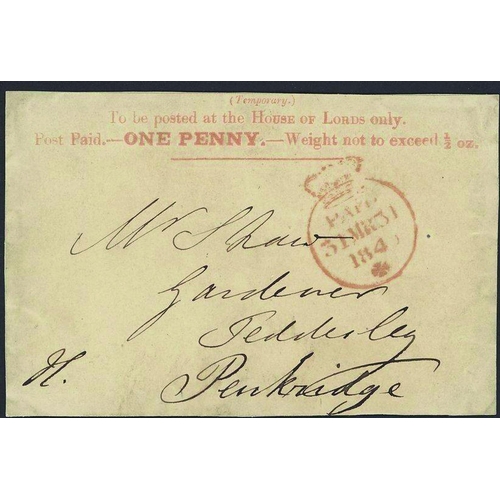 (Temporary.)
To be posted at the HOUSE OF LORDS only.
Post Paid.—ONE PENNY.—Weight not to exceed ½ oz.
PAID
31MR31
1840
Mr Shaw
Gardener
Teddesley
H.
Penkridge